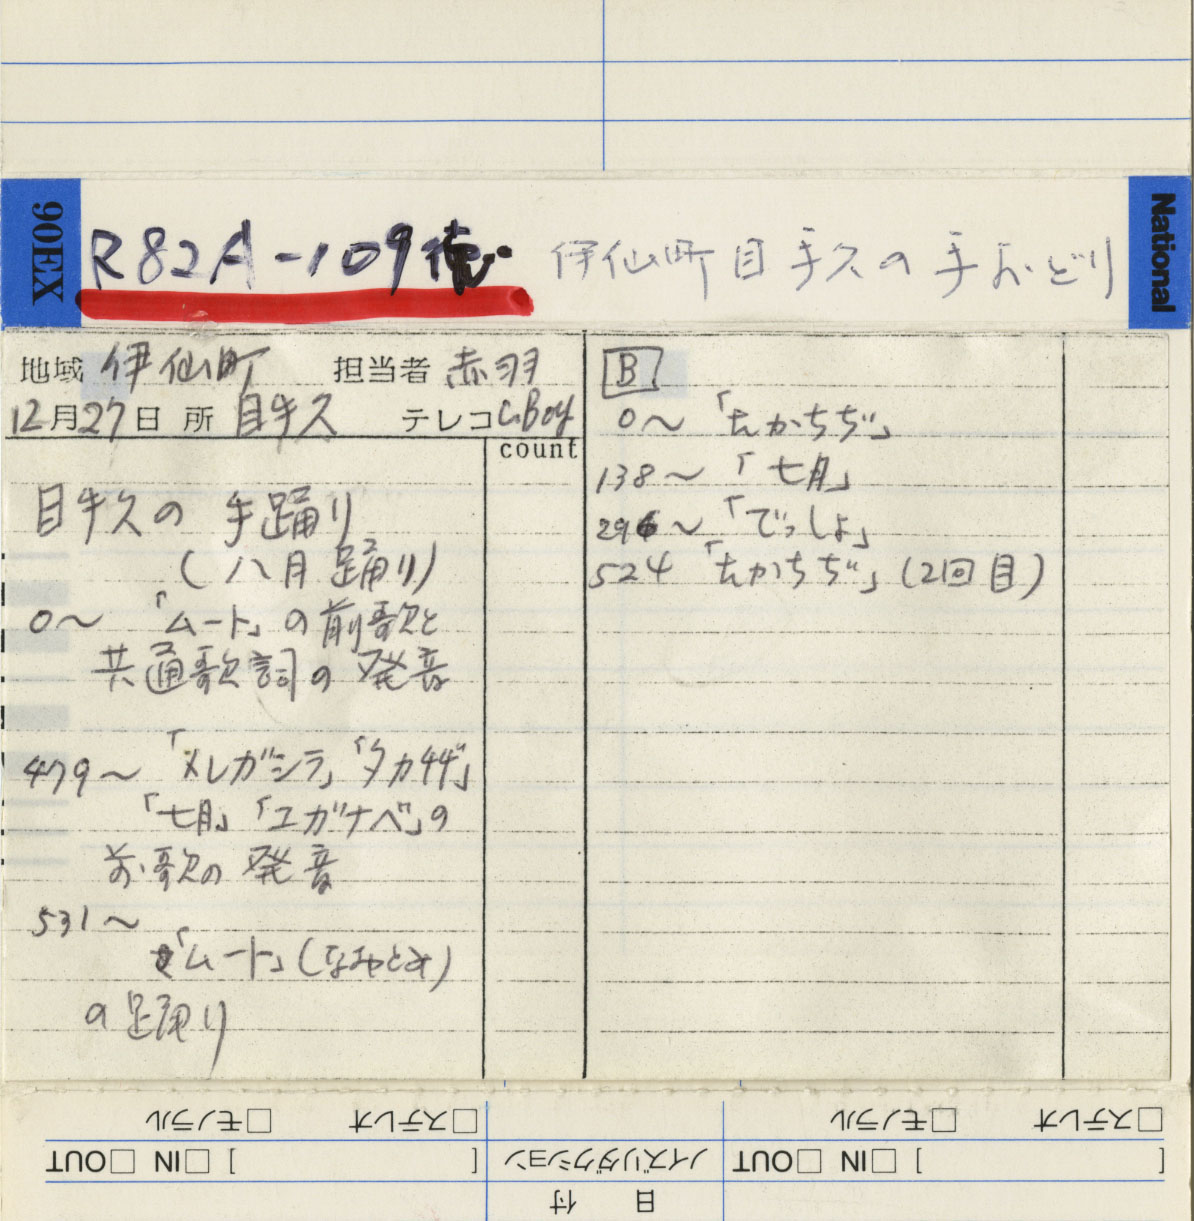 90EX
R82A-109徳
伊仙町目手久の手おどり
National
地域 伊仙町 担当者 赤羽
12月27日 所 目手久 テレコ G.Boy
count
目手久の 手踊り
(八月踊り)
0〜 「ムート」の前歌と
共通歌詞の発音
479〜 「メレガシラ」「タカチヂ」
「七月」「エガナベ」の
前歌の発音
531〜
「ムート」(なみとみ)
の踊り
B
0〜 「たかちぢ」
138〜 「七月」
296〜 「でっしょ」
524 「たかちぢ」(2回目)
□ステレオ □モノラル
[ ] □IN □OUT
ノイズリダクション
□ステレオ □モノラル
[ ] □IN □OUT
日 付